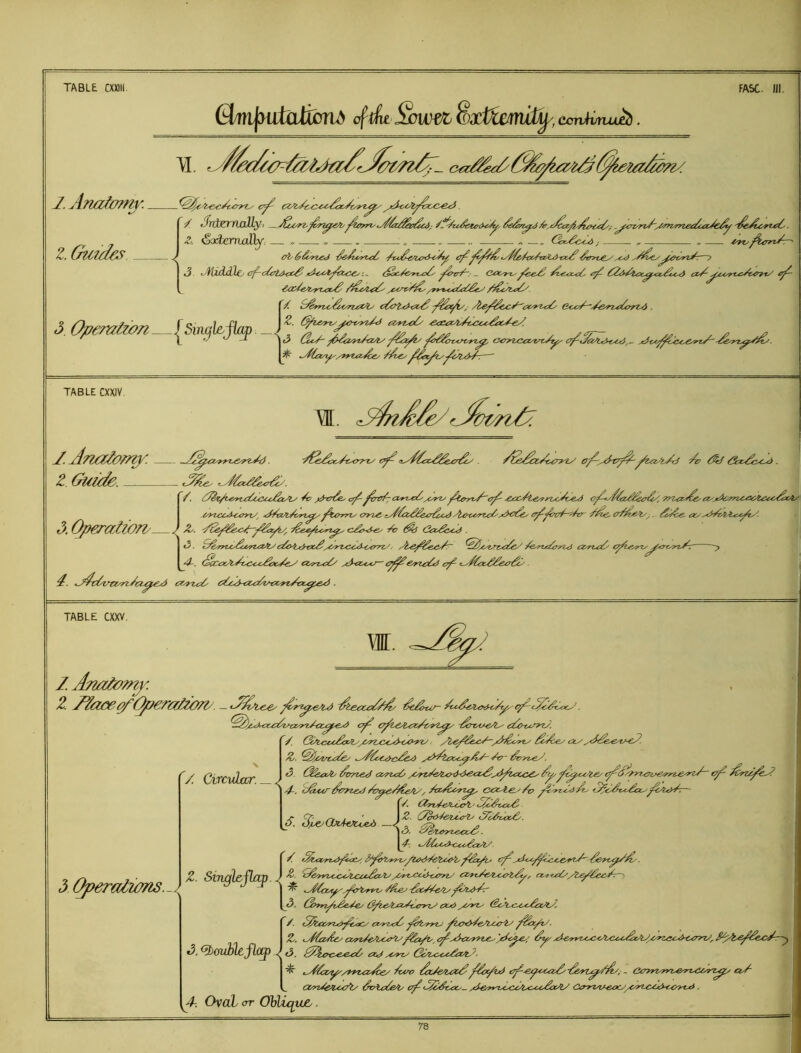 TABLE CXXIII. FASC. III.
Amputations of the Lower Extremity, continued.
VI. Medio-tarsal Joint; - called Chopart's Operation.
1. Anatomy. Direction of articulating surfaces.
2. Guides.
1. Internally, Run finger from Malleolus, 1st tuberosity belongs to Scaphoid; - joint immediately behind.
2. Externally. " " " " Calcis; " " in front
or behind tuberosity of fifth Metatarsal bone, is the joint
3. Middle of dorsal surface: - Extend foot - can feel head of Astragalus at junction of
external third and middle third.
3. Operation Single flap.
1. Semilunar dorsal flap, reflect and cut tendons.
2. Open joints and exarticulate.
3 Cut plantar flap following concavity of Tarsus, - sufficient length.
* May make the flap first
TABLE CXXIV.
VII. Ankle Joint.
1. Anatomy. Ligaments. Relation of Malleoli. Relation of soft parts to Os Calcis.
2. Guide. The Malleoli.
3. Operation
1. Perpendicular to sole of foot and in front of extremities of Malleoli, make a semicircular
incision, starting from one Malleolus beneath sole of foot to the other, - like a stirrup.
2. Reflect flap, keeping close to Os Calcis.
3. Semilunar dorsal incision. Reflect Divide tendons and open joint.
4. Exarticulate and saw off ends of Malleoli.
4. Advantages and disadvantages.
TABLE CXXV.
VIII. Leg.
1. Anatomy.
2. Place of Operation. - Three fingers breadth below tuberosity of Tibia.
Disadvantages of operating lower down.
3 Operations.
1. Circular.
1. Circular incision, reflect skin like a sleeve.
2. Divide Muscles straight to bone.
3. Clear bones and interosseal space by figure of 8 movement of knife
4. Saw bones together, taking care to finish Tibia first
5. Tie Arteries
1. Anterior Tibial
2. Posterior Tibial.
3. Peroneal.
4. Muscular.
2. Single flap.
1. Transfix, form posterior flap of sufficient length.
2. Semicircular incision anteriorly, and reflect
* May form the latter first
3. Complete Operation as in Circular.
3. Double flap
1. Transfix and form posterior flap.
2. Make anterior flap, of same size, by semicircular incision, & reflect
3. Proceed as in Circular.
* May make two lateral flaps of equal length, - commencing at
anterior border of Tibia - semicircular convex incisions.
4. Oval or Oblique.
78